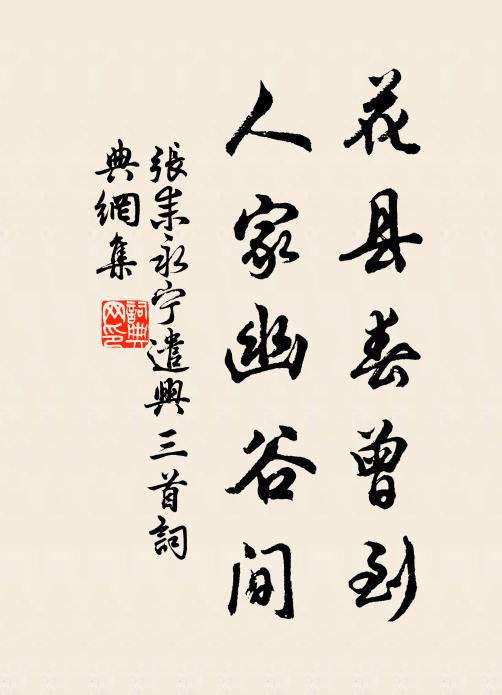 花县春曾到
人家幽谷间
張耒永宁遣興三首詞
典網集
詞典
网印